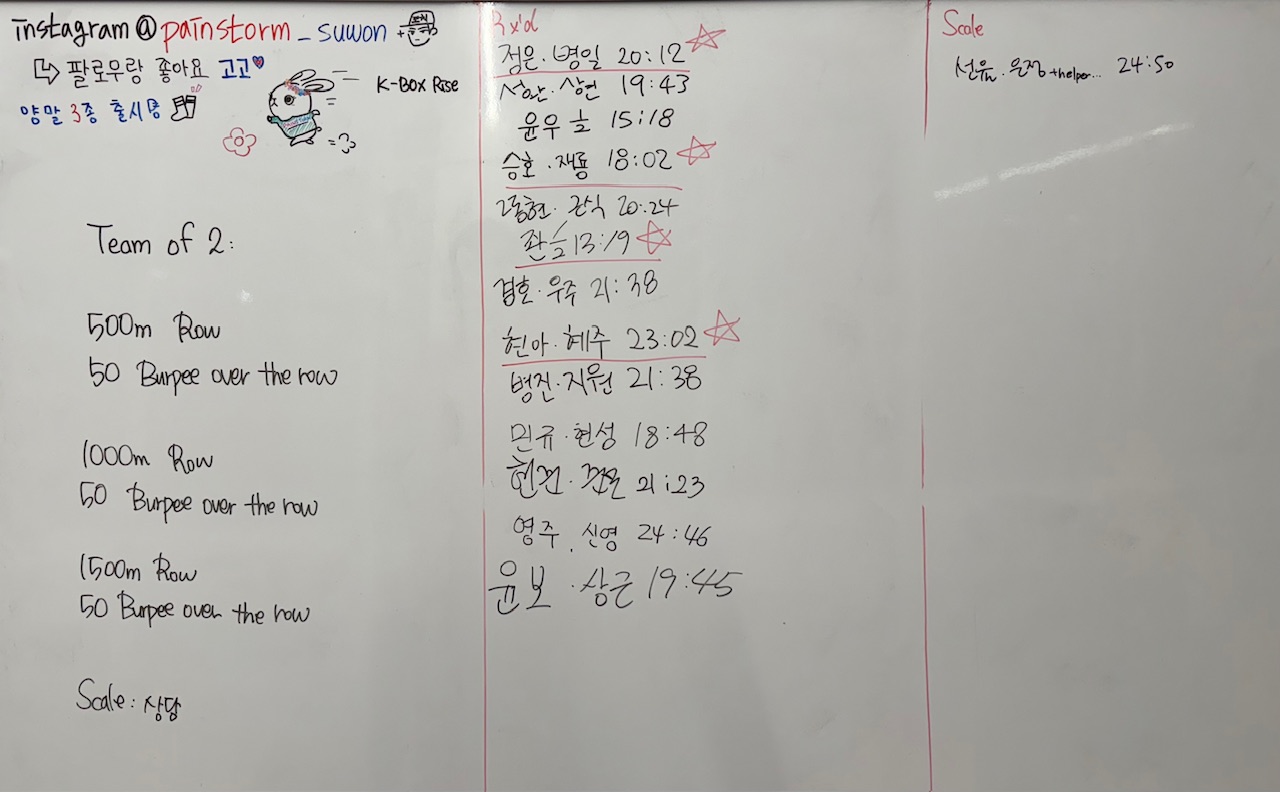 instagram@painstorm_suwon +
팔로우랑 좋아요 고고
양말 3종 출시중
K-Box Rise
Team of 2:
500m Row
50 Burpee over the row
1000m Row
50 Burpee over the row
1500m Row
50 Burpee over the row
Scale: 상담
Rx'd
정은.병일 20:12
성완.상현 19:43
윤우 1/2 15:18
승호.재룡 18:02
근식 20:24
1/2 13:19
겸호.우주 21:38
현아.혜주 23:02
병진.지원 21:38
민규.현성 18:48
21:23
영주.신영 24:46
윤보.상근 19:45
Scale
+helper... 24:50